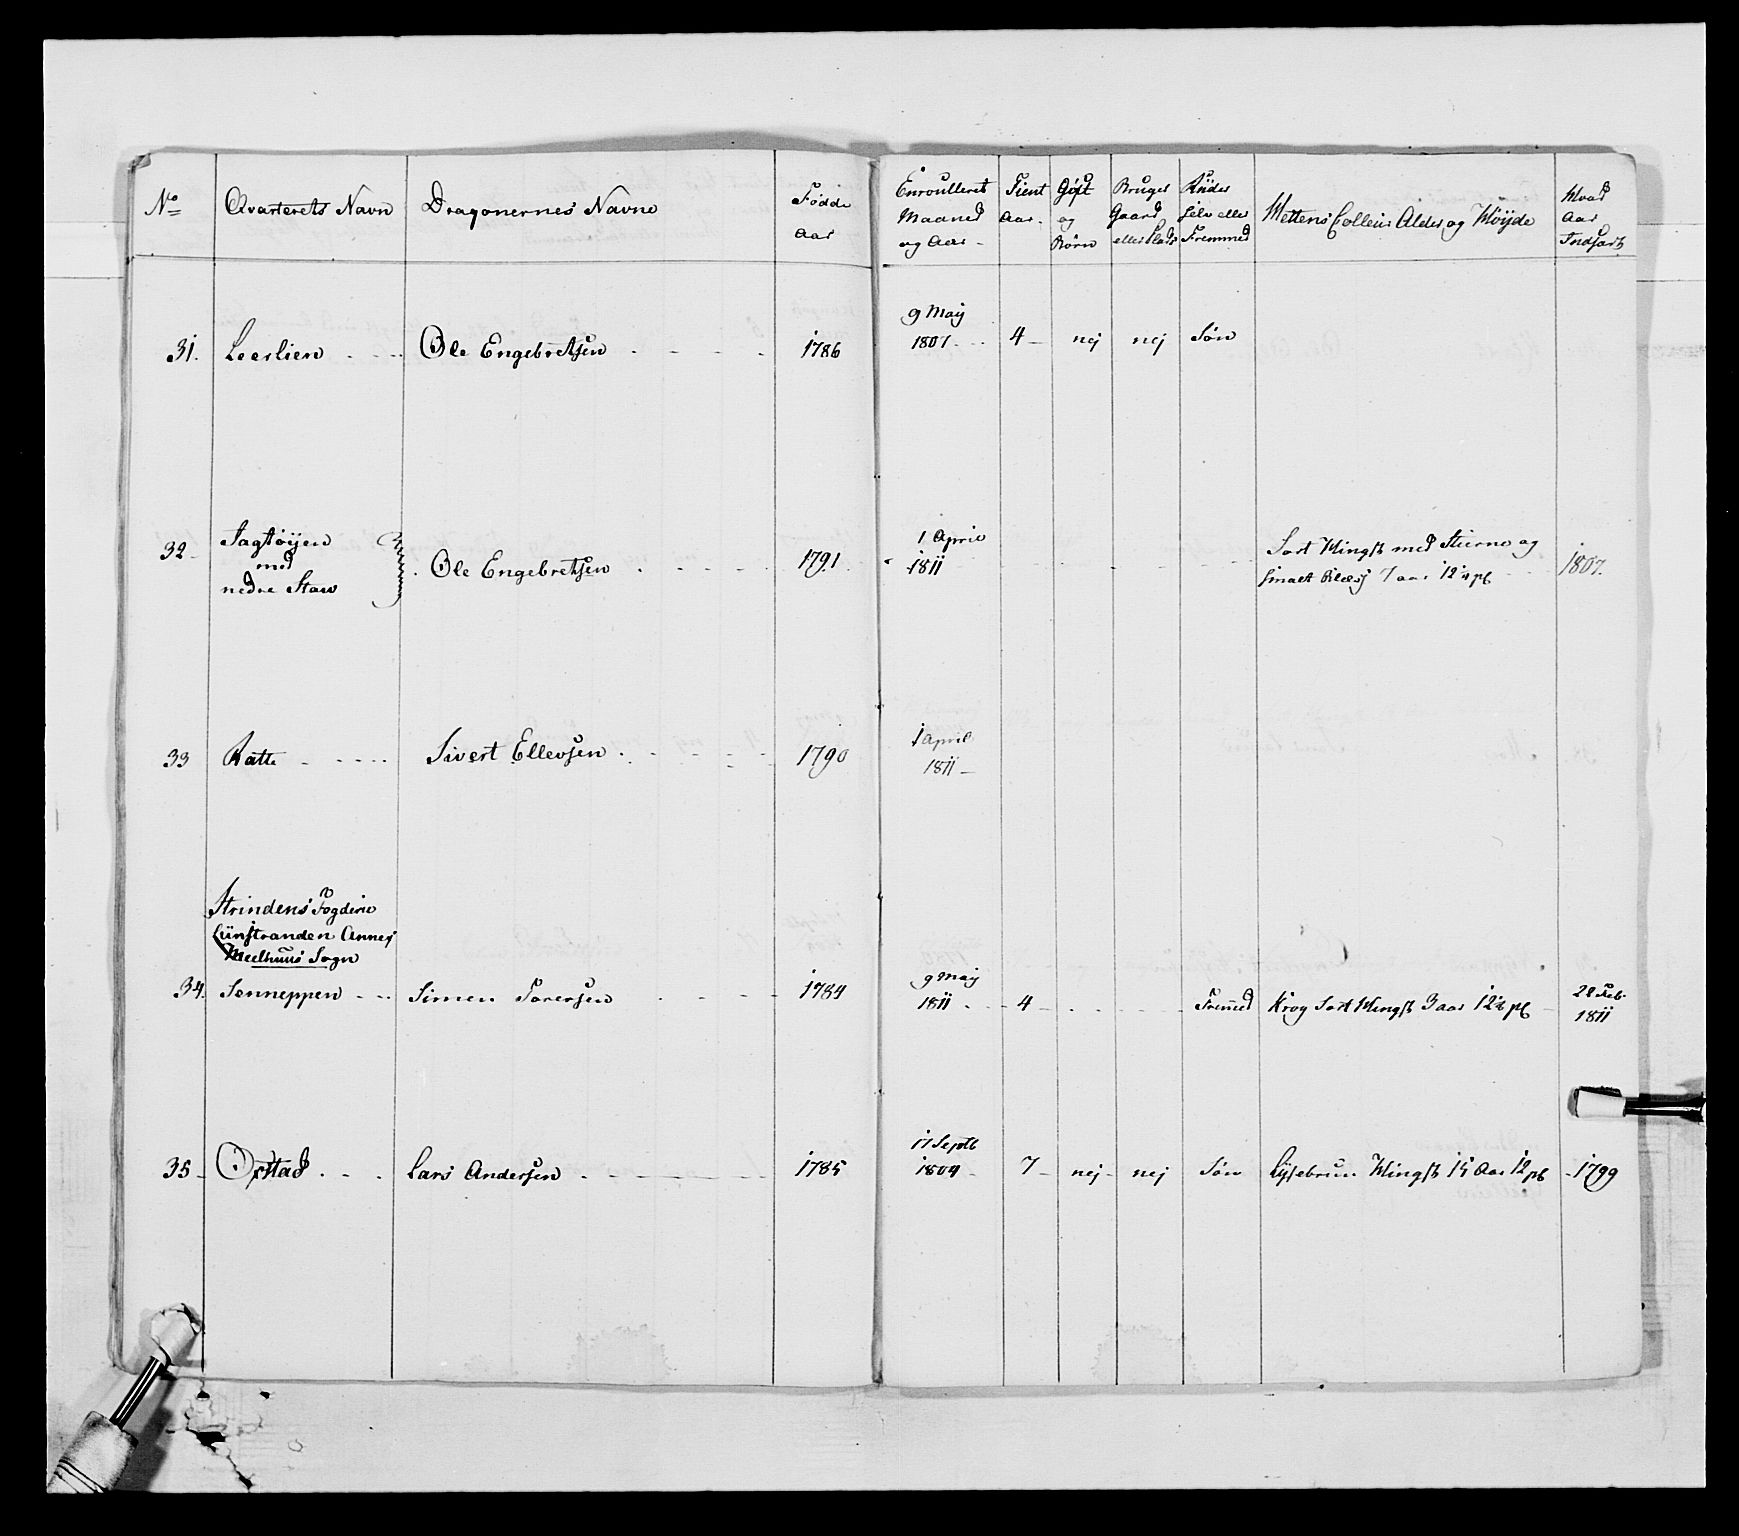 No Qvarterets Navn Dragonernes Navne Fødde Aar Enroulleret Maaned og Aar Tient Aar. Gift og Børn Bruger Gaard eller Plads Rüder selv eller Fremmed Hestens Colleur Alder og Höyde Hvad Aar Indsadt
31. Leerlien Ole Engebretsen 1786 9 Maij 1807. 4 nej nej Søn
32 Jagtöyen
med
nedre Stav Ole Engebretsen 1791 1 April 1811 Sort Hingst med Stierne og
smaet Blæs 7 aar 12 1/4 pl 1807.
33 Ratte Sivert Ellevsen 1790 1 April 1811
Strindens Fogderie
Lünstranden Annex
Meelhuus Sogn
34. Senneppen Simen Torersen 1784 9 Maij 1811 4 Fremed Krog Sort Hingst 3 aar 12 1/2 pl 28 Feb. 1811
35 Ostad Lars Andersen 1785 17 Septb 1804 7 nej nej Søn Lysebrun Hingst 15 Aar 12 pl 1799